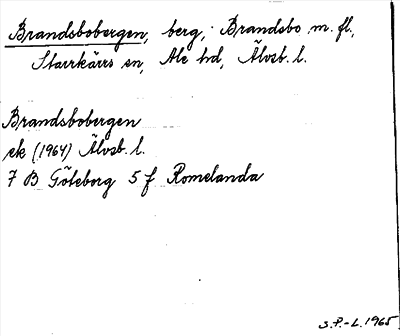 Brandsbobergen, berg, Brandsbo m. fl.,
Starrkärrs sn, Ale hd, Älvsb. l.
Brandsbobergen
ek (1964) Älvsb. l.
7 B Göteborg 5 f Romelanda
S.P.-L. 1965